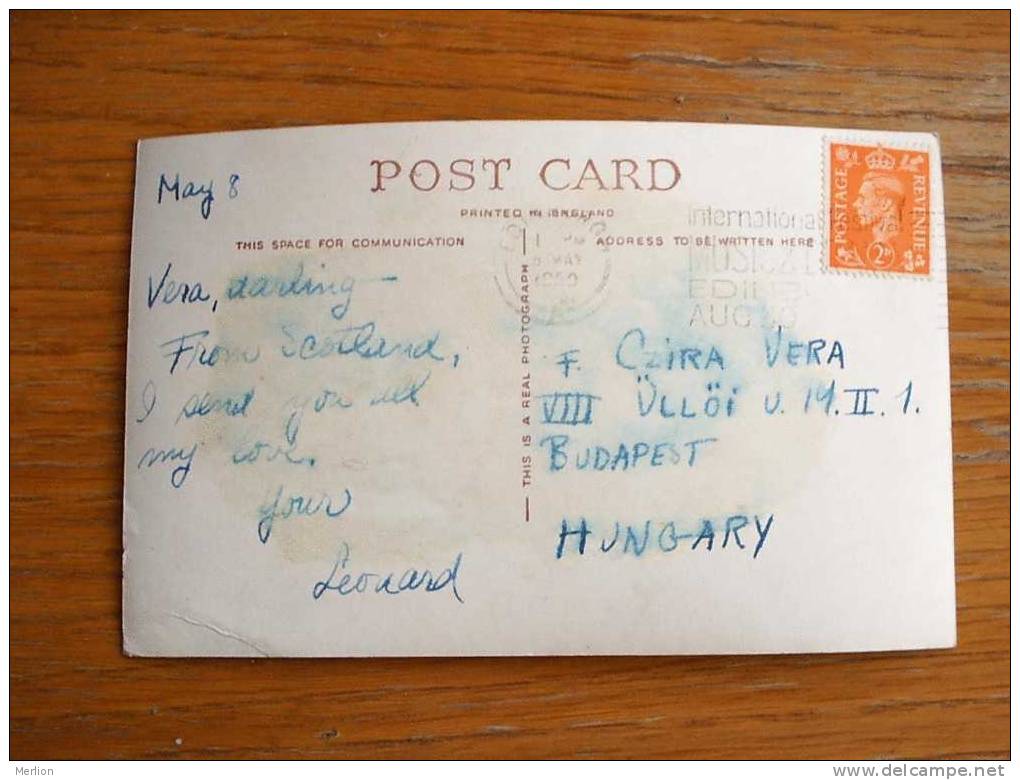 POST CARD
May 8
PRINTED IN ENGLAND
THIS SPACE FOR COMMUNICATION
ADDRESS TO BE WRITTEN HERE
THIS IS A REAL PHOTOGRAPH
International
MUSIC &
EDINB
AUG 20
8 MAY
1950
POSTAGE
REVENUE
2D
Vera, darling—
From Scotland,
I send you all
my love.
Your
Leonard
F. CZIRA VERA
VIII ÜLLÖI U. 14. II. 1.
BUDAPEST
HUNGARY
Merlion
www.delcampe.net